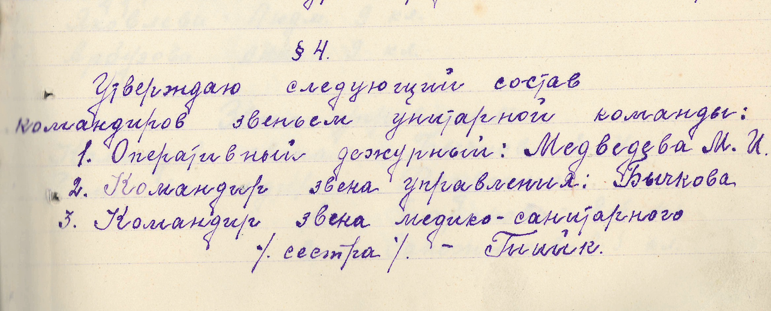 § 4.
Утверждаю следующий состав
командиров звеньем унитарной команды:
1. Оперативный дежурный: Медведева М. И.
2. Командир звена управления: Бычкова
3. Командир звена медико-санитарного
/. сестра /. -